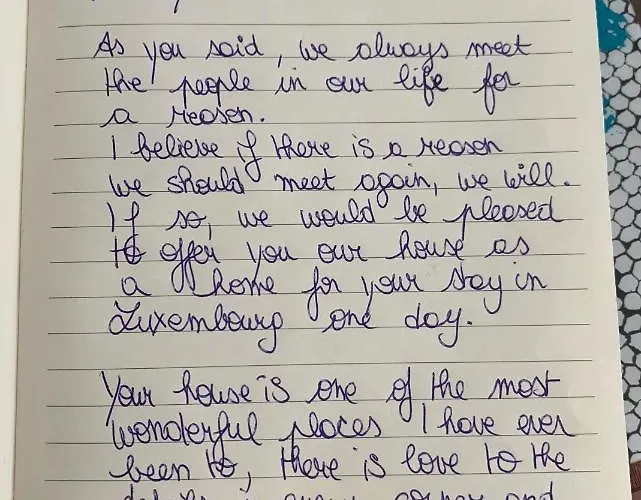 As you said, we always meet
the people in our life for
a reason.
I believe if there is a reason
we should meet again, we will.
If so, we would be pleased
to offer you our house as
a home for your stay in
Luxembourg one day.
Your house is one of the most
wonderful places I have ever
been to, there is love to the
in every corner and